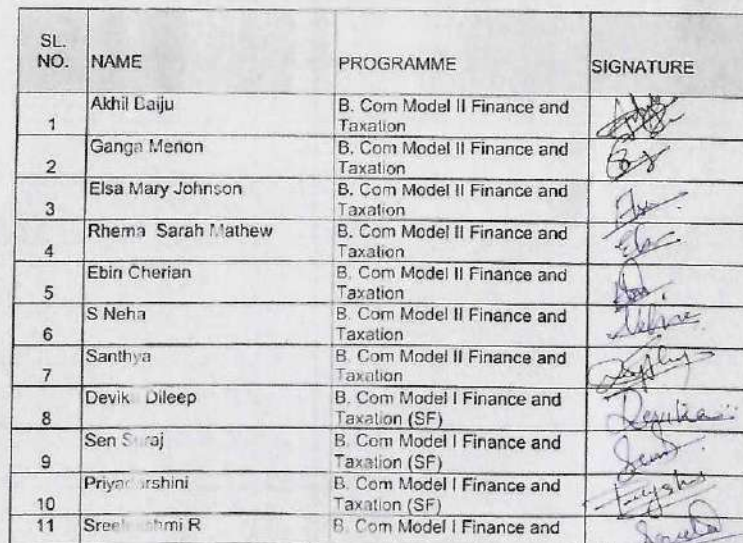 SL. NO. NAME PROGRAMME SIGNATURE
1 Akhil Baiju B. Com Model II Finance and
Taxation
2 Ganga Menon B. Com Model II Finance and
Taxation
3 Elsa Mary Johnson B. Com Model II Finance and
Taxation
4 Rhema Sarah Mathew B. Com Model II Finance and
Taxation
5 Ebin Cherian B. Com Model II Finance and
Taxation
6 S Neha B. Com Model II Finance and
Taxation
7 Santhya B. Com Model II Finance and
Taxation
8 Devika Dileep B. Com Model I Finance and
Taxation (SF) Devika
9 Sen Suraj B. Com Model I Finance and
Taxation (SF)
10 Priyadarshini B. Com Model I Finance and
Taxation (SF)
11 Sreelekshmi R B. Com Model I Finance and